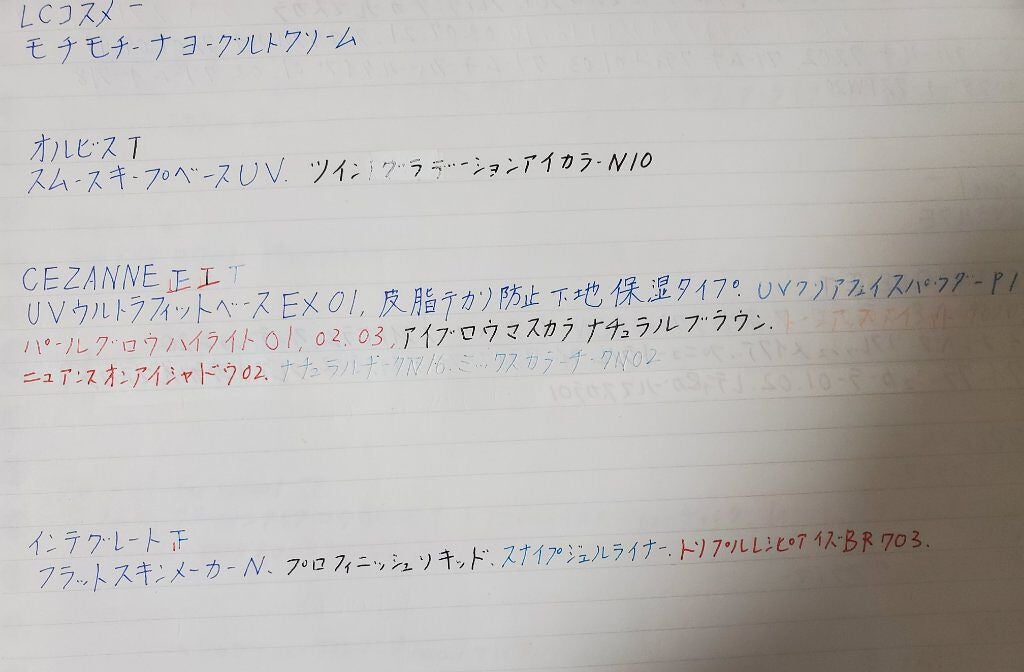 LCコスメ一
モチモチーナヨーグルトクリーム
オルビスT
スムースキープベースUV. ツイングラデーションアイカラーN10
CEZANNE正工T
UVウルトラフィットベースEX01, 皮脂テカリ防止下地 保湿タイプ. UVクリアフェイスパウダーP1
パールグロウハイライト01, 02, 03, アイブロウマスカラ ナチュラルブラウン.
ニュアンスオンアイシャドウ02. ナチュラルチークN16. ミックスカラーチークN02
インテグレート正
フラットスキンメーカーN、プロフィニッシュリキッド、スナイプジェルライナー. トリプルレシピアイズBR703.